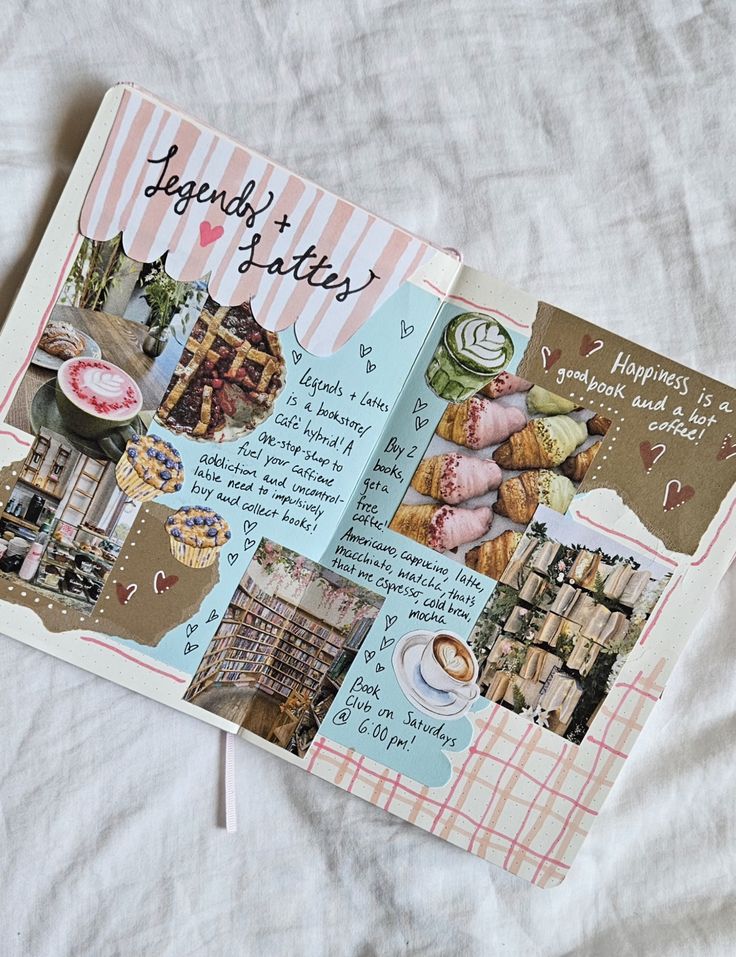 Legends +
Lattes
Legends + Lattes
is a bookstore/
café hybrid! A
one-stop-shop to
fuel your caffiene
addiction and uncontrol-
lable need to impulsively
buy and collect books!
Buy 2
books,
get a
free
coffee!
Americano, cappucino, latte,
macchiato, matcha, that's
that me espresso, cold brew,
mocha
Book
Club on Saturdays
@ 6:00 pm!
Happiness is a
good book and a hot
coffee!